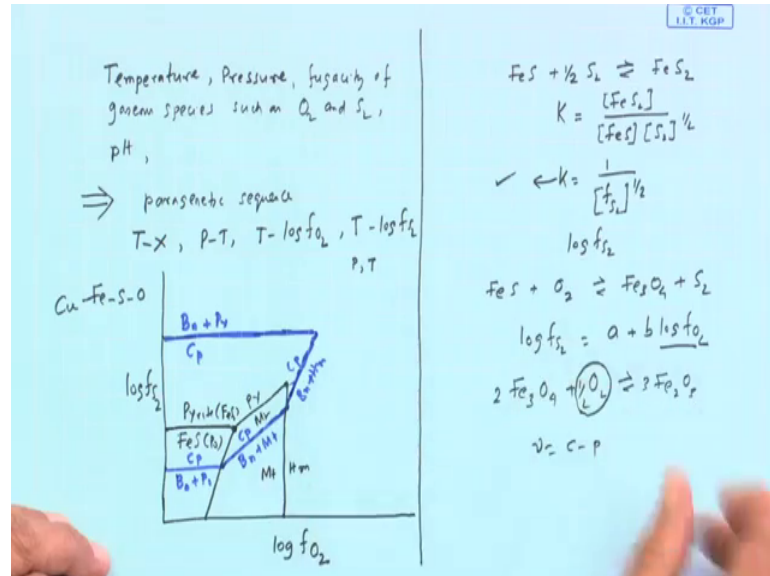 © CET
I.I.T. KGP
Temperature, Pressure, fugacity of
gaseous species such as O2 and S2,
pH,
⇒ paragenetic sequence
T-X, P-T, T-log fO2, T-log fS2
P,T
Cu-Fe-S-O
log fS2
Bn + Py
Cp
Cp
Bn+Hm
Pyrite(FeS2)
FeS(Po)
Py
Mt
Cp
Bn+Mt
Cp
Bn+Po
Mt
Hm
log fO2
FeS + 1/2 S2 ⇌ FeS2
K = [FeS2] / [FeS][S2]^1/2
✓ ← K = 1 / [fS2]^1/2
log fS2
FeS + O2 ⇌ Fe3O4 + S2
log fS2 = a + b log fO2
2 Fe3O4 + 1/2 O2 ⇌ 3 Fe2O3
ν = c - p